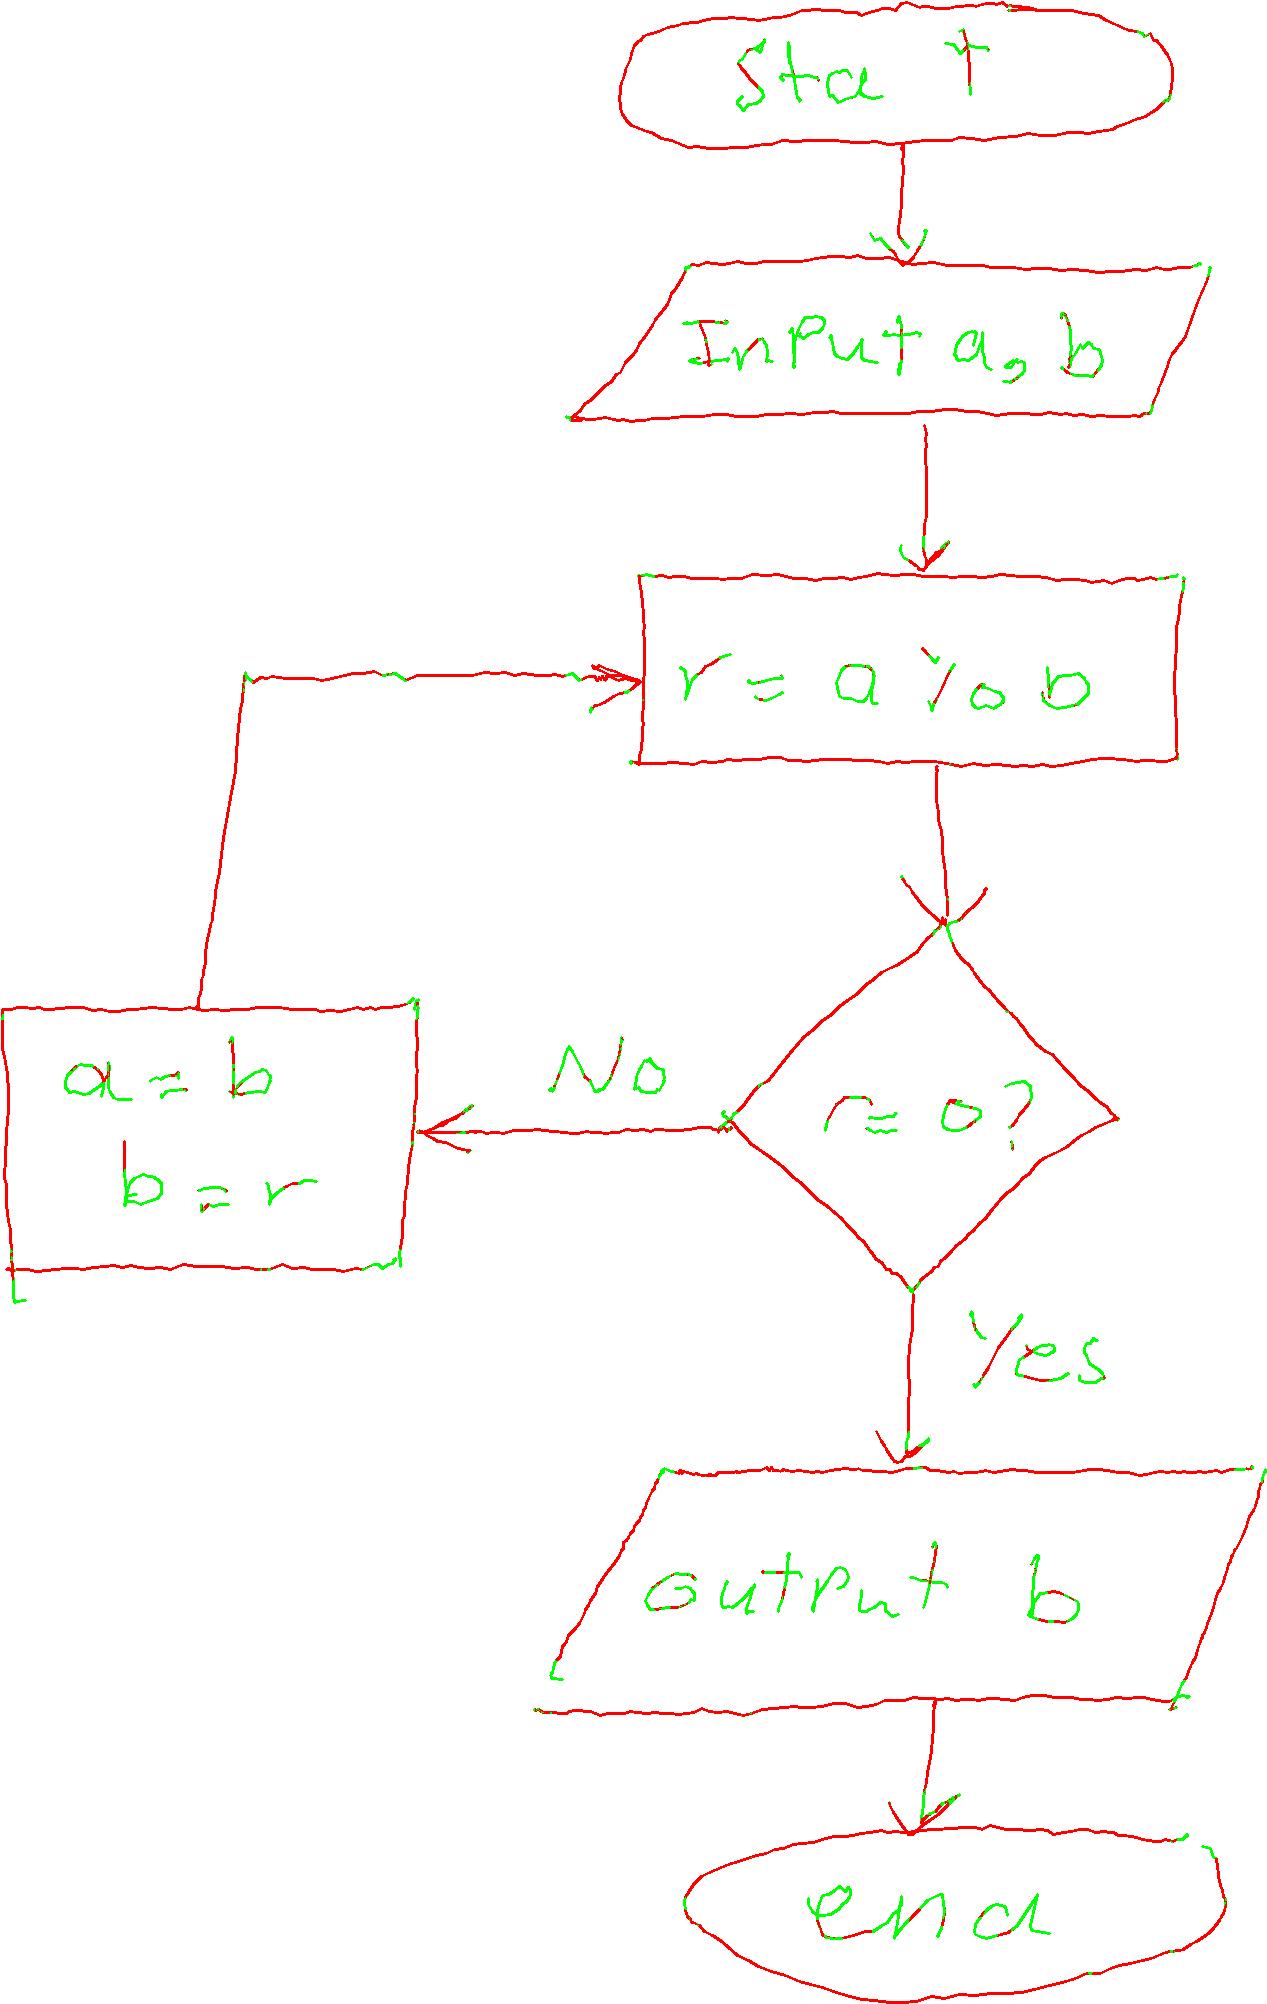 Sta t
Input a, b
r = a % b
No
a = b
b = r
r = 0 ?
Yes
output b
end